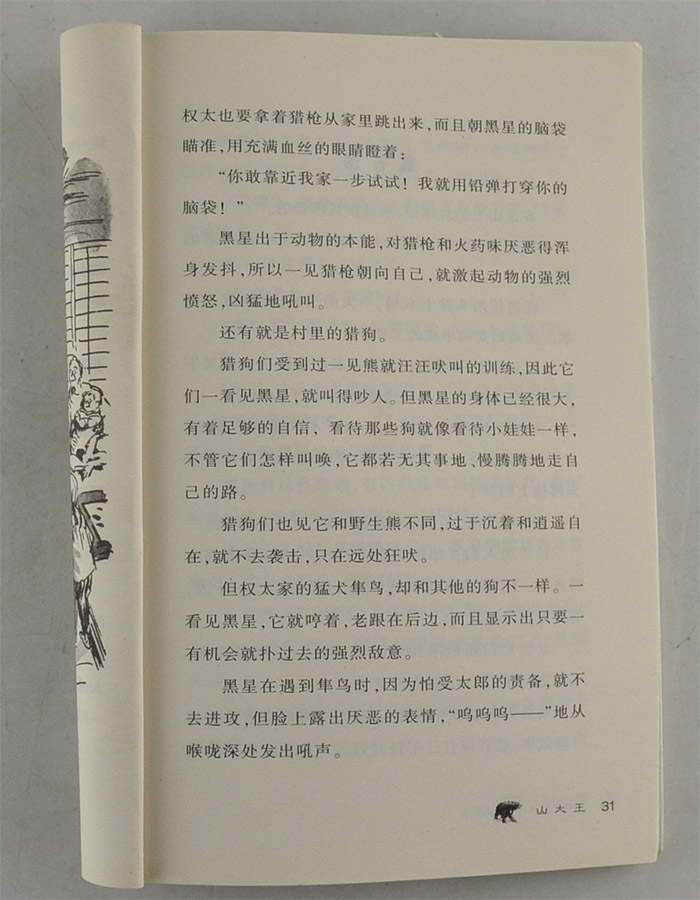 权太也要拿着猎枪从家里跳出来，而且朝黑星的脑袋
瞄准，用充满血丝的眼睛瞪着：
“你敢靠近我家一步试试！我就用铅弹打穿你的
脑袋！”
黑星出于动物的本能，对猎枪和火药味厌恶得浑
身发抖，所以一见猎枪朝向自己，就激起动物的强烈
愤怒，凶猛地吼叫。
还有就是村里的猎狗。
猎狗们受到过一见熊就汪汪吠叫的训练，因此它
们一看见黑星，就叫得吵人。但黑星的身体已经很大，
有着足够的自信，看待那些狗就像看待小娃娃一样，
不管它们怎样叫唤，它都若无其事地、慢腾腾地走自
己的路。
猎狗们也见它和野生熊不同，过于沉着和逍遥自
在，就不去袭击，只在远处狂吠。
但权太家的猛犬隼鸟，却和其他的狗不一样。一
看见黑星，它就哼着，老跟在后边，而且显示出只要一
有机会就扑过去的强烈敌意。
黑星在遇到隼鸟时，因为怕受太郎的责备，就不
去进攻，但脸上露出厌恶的表情，“呜呜呜——”地从
喉咙深处发出吼声。
山大王 31